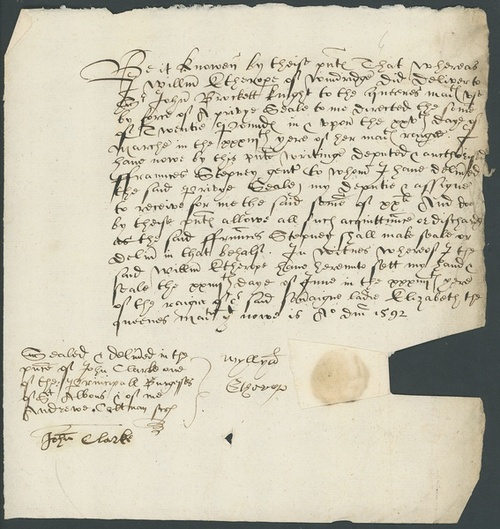 Be it knowen by theise pnts That whereas
I Willm Etherope of did deliver to
Sr John Brockett knight to the Queenes matys use
by force of A privye Seale to me directed the sume
of Twentie Pounds in & upon the xxth daye of
Marche in the yere of her mats raigne I
have nowe by this pnte writinge deputed & authorised
ffraunces Stepney gent to whom I have delivered
the said Privye Seale my deputie & assigne
to receive for me the said some of xxli And doe
by theise pnts allowe all such acquittance or discharge
as the said ffraunces Stepney shall make seale or
deliver in that behalf. In witnes whereof I the
said Willm Etherope have hereunto sett my hand &
seale the daye of June in the xxxiiijth yere
of the raigne of o said Soveraigne ladie Elizabeth the
queenes maty nowe is Ao dm 1592
Sealed & delivered in the
pnce of John Clarke one
of the Principall Burgesses
of St Albons & of me
Andrewe
John Clarke
Wyllym
Etherop